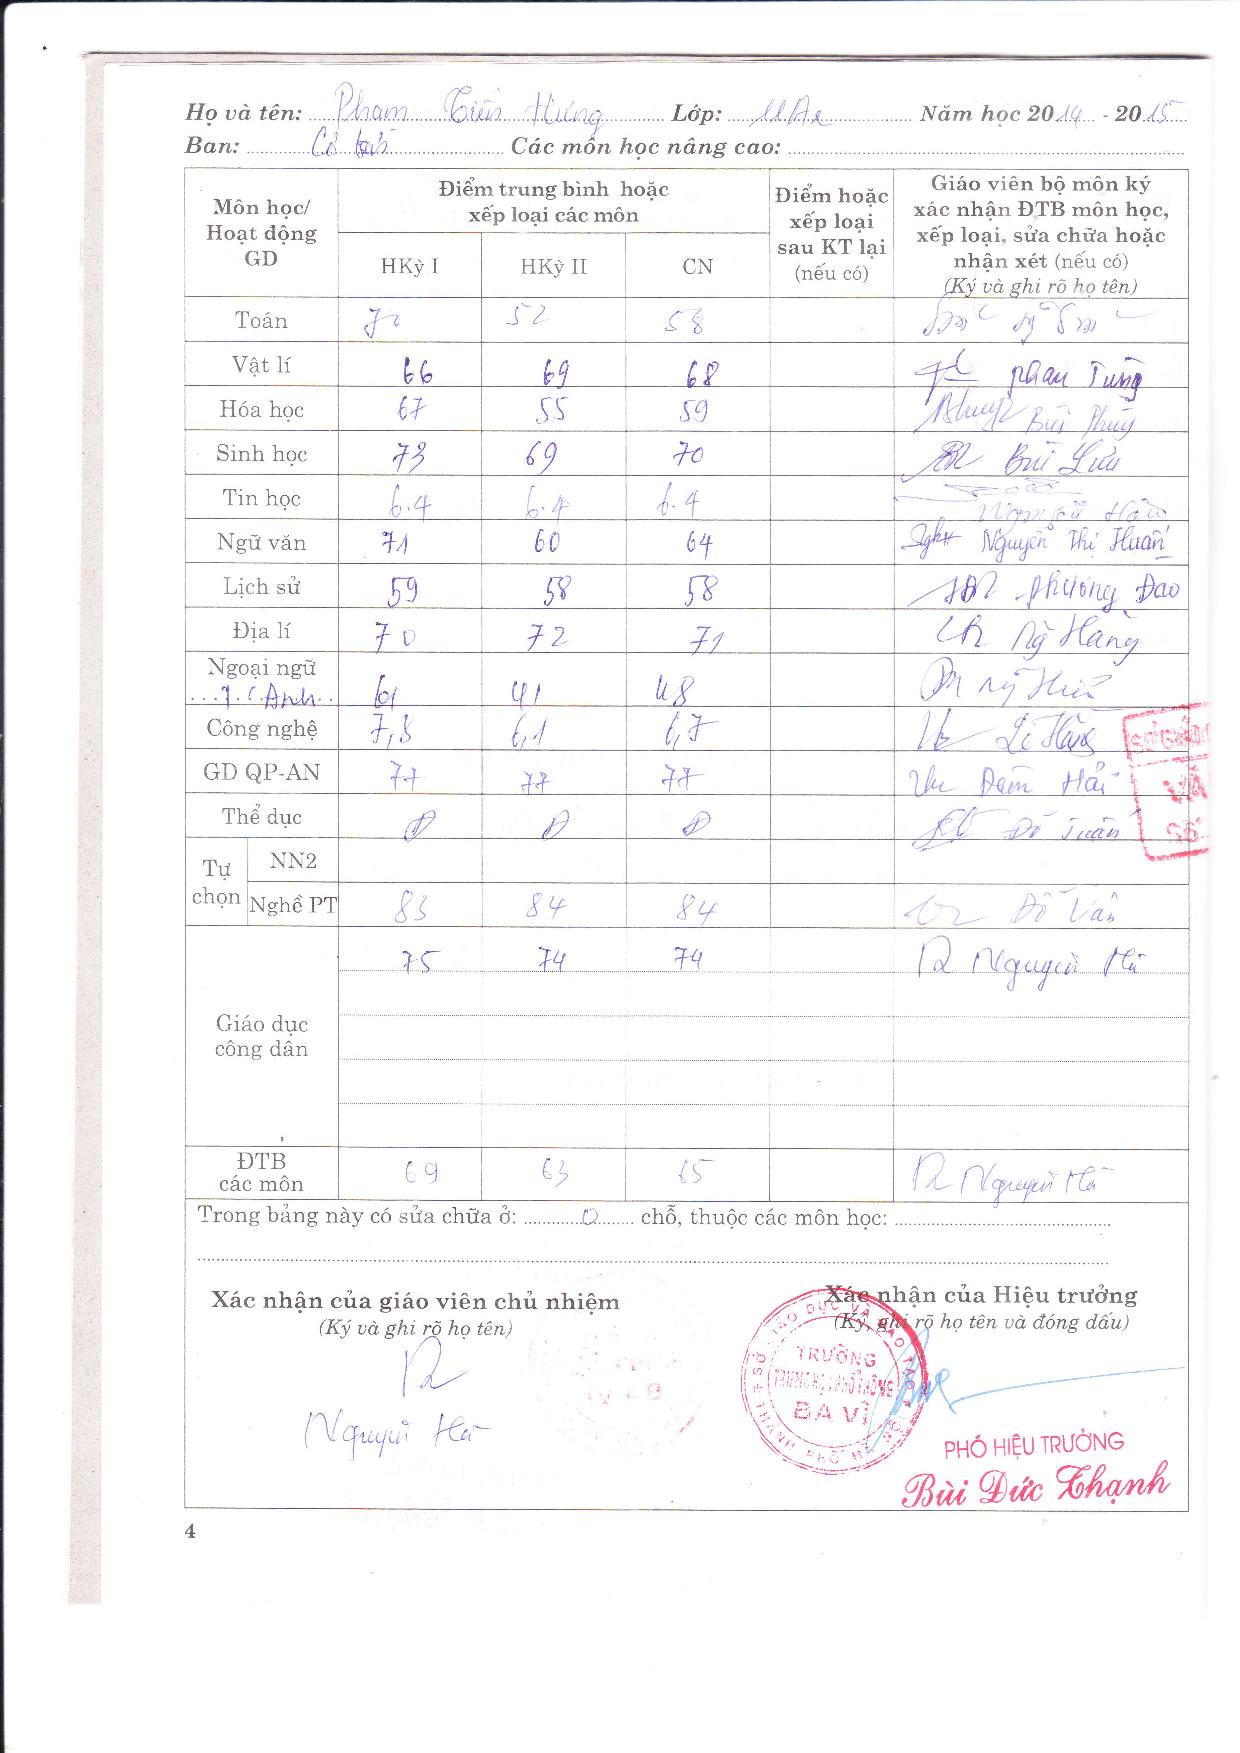 Họ và tên: Phạm Tiến Hưng Lớp: 11A2 Năm học 2014 - 2015
Ban: Cơ bản Các môn học nâng cao:
Môn học/ Hoạt động GD
Điểm trung bình hoặc xếp loại các môn
HKỳ I HKỳ II CN
Điểm hoặc xếp loại sau KT lại (nếu có)
Giáo viên bộ môn ký xác nhận ĐTB môn học, xếp loại, sửa chữa hoặc nhận xét (nếu có) (Ký và ghi rõ họ tên)
Toán 70 52 58
Vật lí 66 69 68 Phan Tùng
Hóa học 67 55 59 Bùi Thủy
Sinh học 73 69 70 Bùi Lưu
Tin học 6.4 6.4 6.4
Ngữ văn 71 60 64 Nguyễn Thị Huấn
Lịch sử 59 58 58 Phương Đao
Địa lí 70 72 71 Ng Hằng
Ngoại ngữ
T. Anh 61 41 48
Công nghệ 7,8 6,1 6,7 Lê Hằng
GD QP-AN 77 77 77 Đam Hải
Thể dục Đ Đ Đ Đỗ Tuấn
Tự chọn
NN2
Nghề PT 83 84 84 Đỗ Vân
Giáo dục công dân 75 74 74 Nguyễn Hà
ĐTB các môn 69 63 65 Nguyễn Hà
Trong bảng này có sửa chữa ở: 0 chỗ, thuộc các môn học:
Xác nhận của giáo viên chủ nhiệm
(Ký và ghi rõ họ tên)
Nguyễn Hà
Xác nhận của Hiệu trưởng
(Ký, ghi rõ họ tên và đóng dấu)
TRƯỜNG
TRUNG HỌC PHỔ THÔNG
BA VÌ
PHÓ HIỆU TRƯỞNG
Bùi Đức Thạnh
4